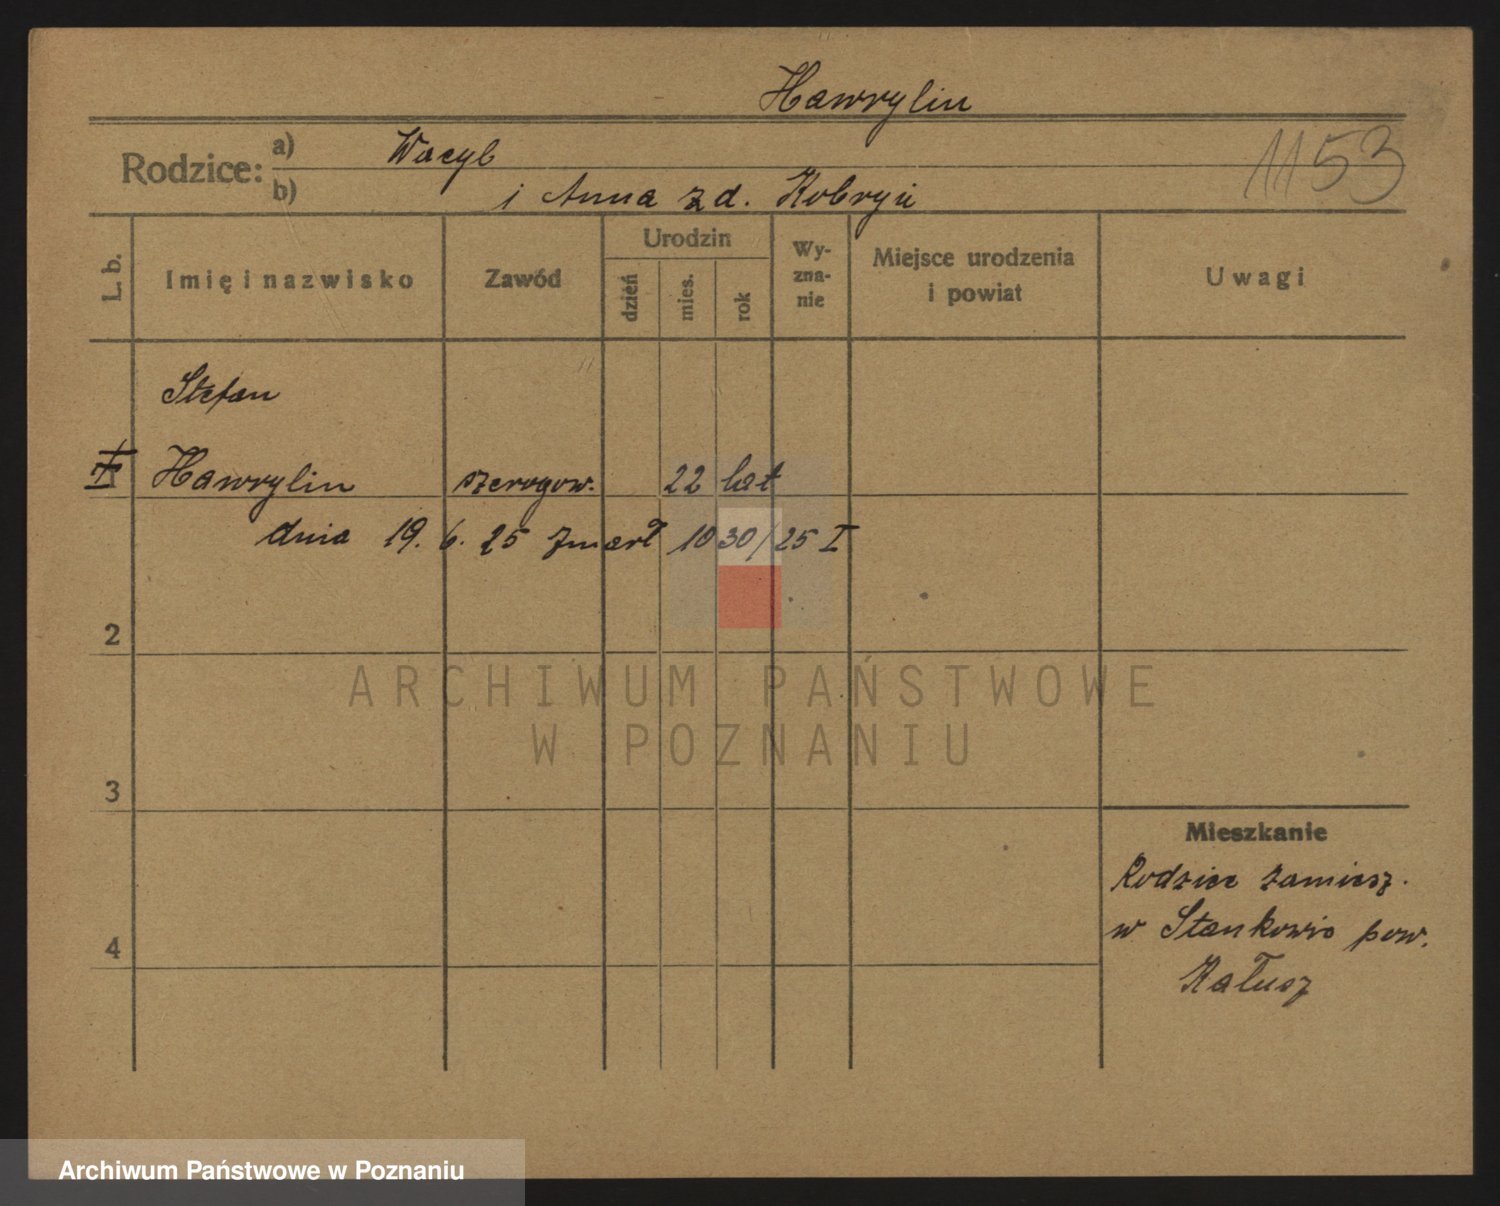 Hawrylin
Rodzice: a) Wacyl
b) i Anna z d. Kobryń
1153
L. b.
Imię i nazwisko
Zawód
Urodzin
dzień
mies.
rok
Wy-
zna-
nie
Miejsce urodzenia
i powiat
Uwagi
Stefan
Hawrylin szeregow. 22 lat
dnia 19. 6. 25 zmarł 1030/25 I
2
ARCHIWUM PAŃSTWOWE
W POZNANIU
3
Mieszkanie
Rodzice zamiesz.
w Stankowie pow.
Kałusz
4
Archiwum Państwowe w Poznaniu